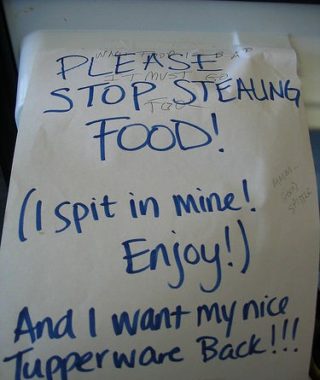 PLEASE
STOP STEALING
FOOD!
(I spit in mine!
Enjoy!)
And I want my nice
Tupperware Back!!!